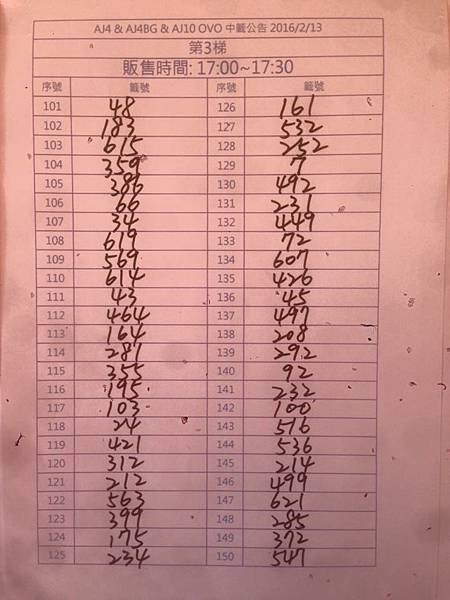 AJ4 & AJ4BG & AJ10 OVO 中籤公告 2016/2/13
第3梯
販售時間: 17:00~17:30
序號 籤號 序號 籤號
101 48 126 161
102 183 127 532
103 615 128 252
104 359 129 7
105 386 130 492
106 66 131 231
107 34 132 449
108 619 133 72
109 569 134 607
110 614 135 426
111 43 136 45
112 464 137 497
113 164 138 208
114 281 139 292
115 355 140 92
116 195 141 232
117 103 142 100
118 24 143 516
119 421 144 536
120 312 145 214
121 212 146 499
122 563 147 621
123 399 148 285
124 175 149 372
125 234 150 547